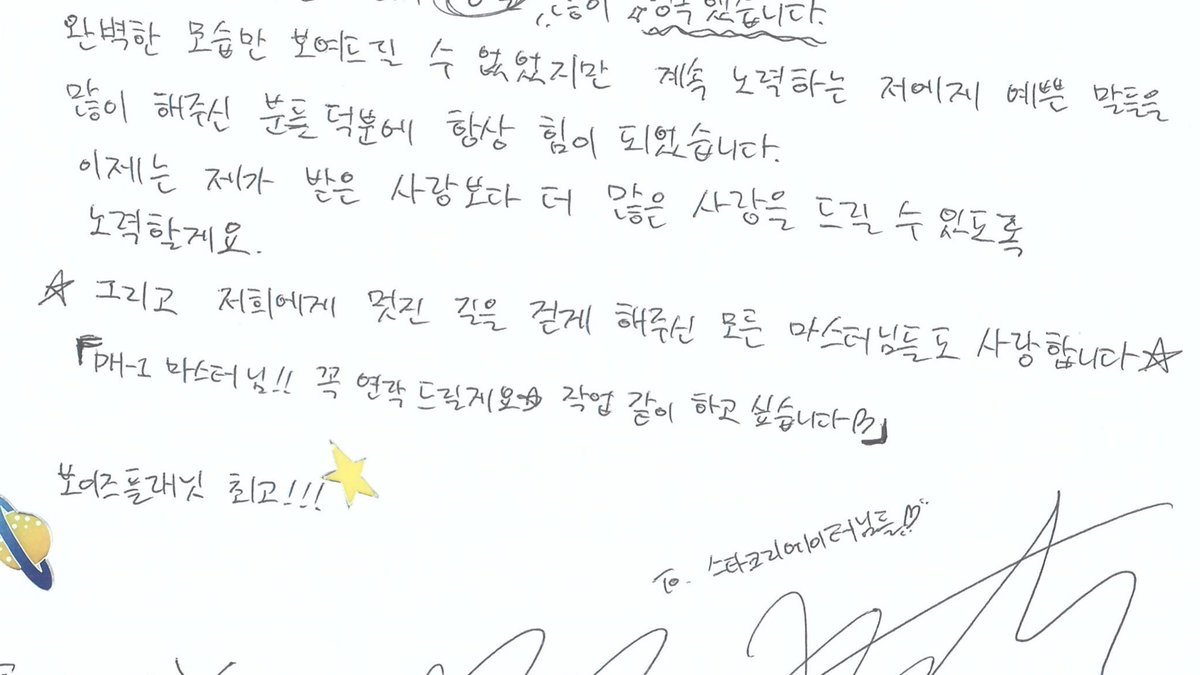 완벽한 모습만 보여드릴 수 없었지만 계속 노력하는 저에게 예쁜 말들을
많이 해주신 분들 덕분에 항상 힘이 되었습니다.
이제는 제가 받은 사랑보다 더 많은 사랑을 드릴 수 있도록
노력할게요.
☆ 그리고 저희에게 멋진 길을 걷게 해주신 모든 마스터님들도 사랑합니다☆
마스터님!! 꼭 연락드릴게요☆ 작업 같이 하고 싶습니다
보이즈플래닛 최고!!!
To. 스타크리에이터님들♡